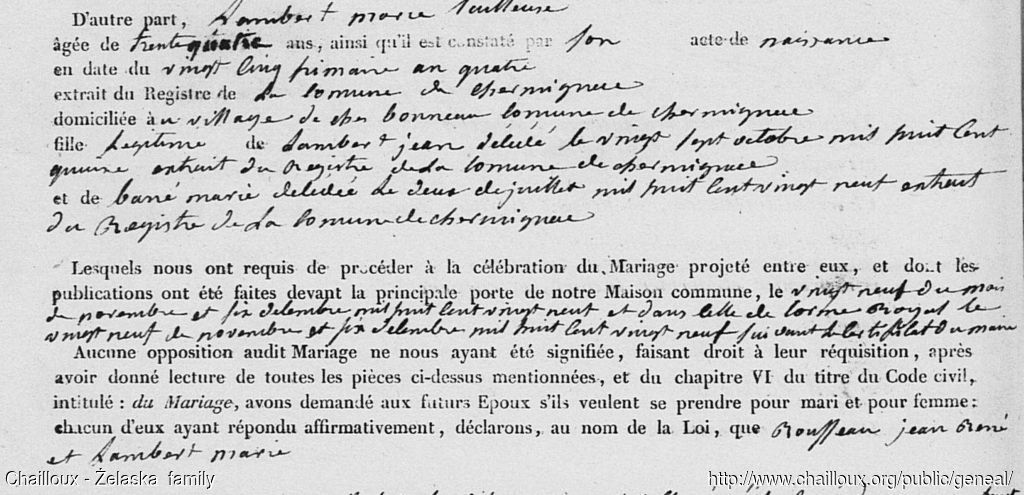 D'autre part, Lambert marie tailleuse
âgée de trente quatre ans, ainsi qu'il est constaté par son acte de naissance
en date du vingt cinq frimaire an quatre
extrait du Registre de La comune de chermignac
domiciliée à u village de ches bonneau comune de chermignac
fille Legitime de Lambert jean délédé le vingt sept octobre mil huit cent
quinze extrait du Registre de La comune de chermignac
et de bané marie délédée Le deux de juillet mil huit cent vingt neuf extrait
du Registre de La comune de chermignac
Lesquels nous ont requis de procéder à la célébration du Mariage projeté entre eux, et dont les
publications ont été faites devant la principale porte de notre Maison commune, le vingt neuf du mois
de novembre et six délembre mil huit cent vingt neuf et dans celle de corme Royal le
vingt neuf de novembre et six délembre mil huit cent vingt neuf suivant le certificat du maire
Aucune opposition audit Mariage ne nous ayant été signifiée, faisant droit à leur réquisition, après
avoir donné lecture de toutes les pièces ci-dessus mentionnées, et du chapitre VI du titre du Code civil,
intitulé : du Mariage, avons demandé aux futurs Epoux s'ils veulent se prendre pour mari et pour femme :
chacun d'eux ayant répondu affirmativement, déclarons, au nom de la Loi, que Rousseau jean René
et Lambert marie
Chailloux - Żelaska family http://www.chailloux.org/public/geneal/